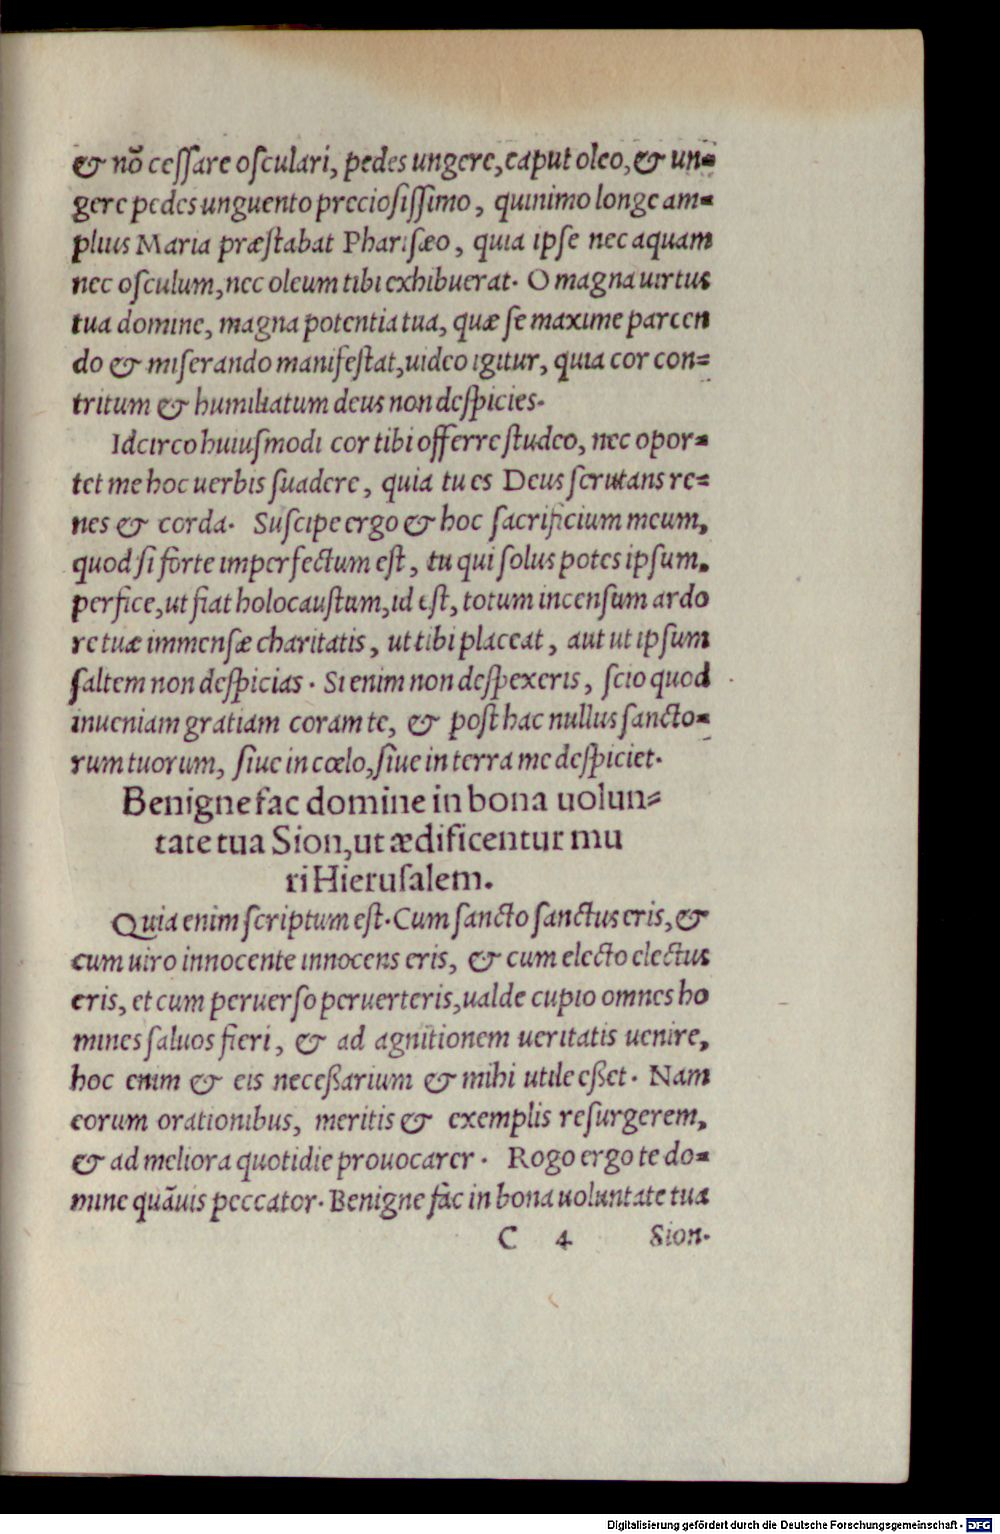 & nō ceſſare oſculari, pedes ungere, caput oleo, & un-
gere pedes unguento precioſiſſimo, quinimo longe am-
plius Maria præſtabat Phariſæo, quia ipſe nec aquam
nec oſculum, nec oleum tibi exhibuerat. O magna uirtus
tua domine, magna potentia tua, quæ ſe maxime parcen
do & miſerando manifeſtat, uideo igitur, quia cor con-
tritum & humiliatum deus non deſpicies.
Idcirco huiuſmodi cor tibi offerre ſtudeo, nec opor-
tet me hoc uerbis ſuadere, quia tu es Deus ſcrutans re-
nes & corda. Suſcipe ergo & hoc ſacrificium meum,
quod ſi forte imperfectum eſt, tu qui ſolus potes ipſum,
perfice, ut fiat holocauſtum, id eſt, totum incenſum ardo
re tuæ immenſæ charitatis, ut tibi placeat, aut ut ipſum
ſaltem non deſpicias. Si enim non deſpexeris, ſcio quod
inueniam gratiam coram te, & poſt hac nullus ſancto-
rum tuorum, ſiue in cœlo, ſiue in terra me deſpiciet.
Benigne fac domine in bona uolun-
tate tua Sion, ut ædificentur mu
ri Hieruſalem.
Quia enim ſcriptum eſt. Cum ſancto ſanctus eris, &
cum uiro innocente innocens eris, & cum electo electus
eris, et cum peruerſo peruerteris, ualde cupio omnes ho
mines ſaluos fieri, & ad agnitionem ueritatis uenire,
hoc enim & eis neceßarium & mihi utile eßet. Nam
eorum orationibus, meritis & exemplis reſurgerem,
& ad meliora quotidie prouocarer. Rogo ergo te do-
mine quāuis peccator. Benigne fac in bona uoluntate tua
C 4 Sion.
Digitalisierung gefördert durch die Deutsche Forschungsgemeinschaft - DFG